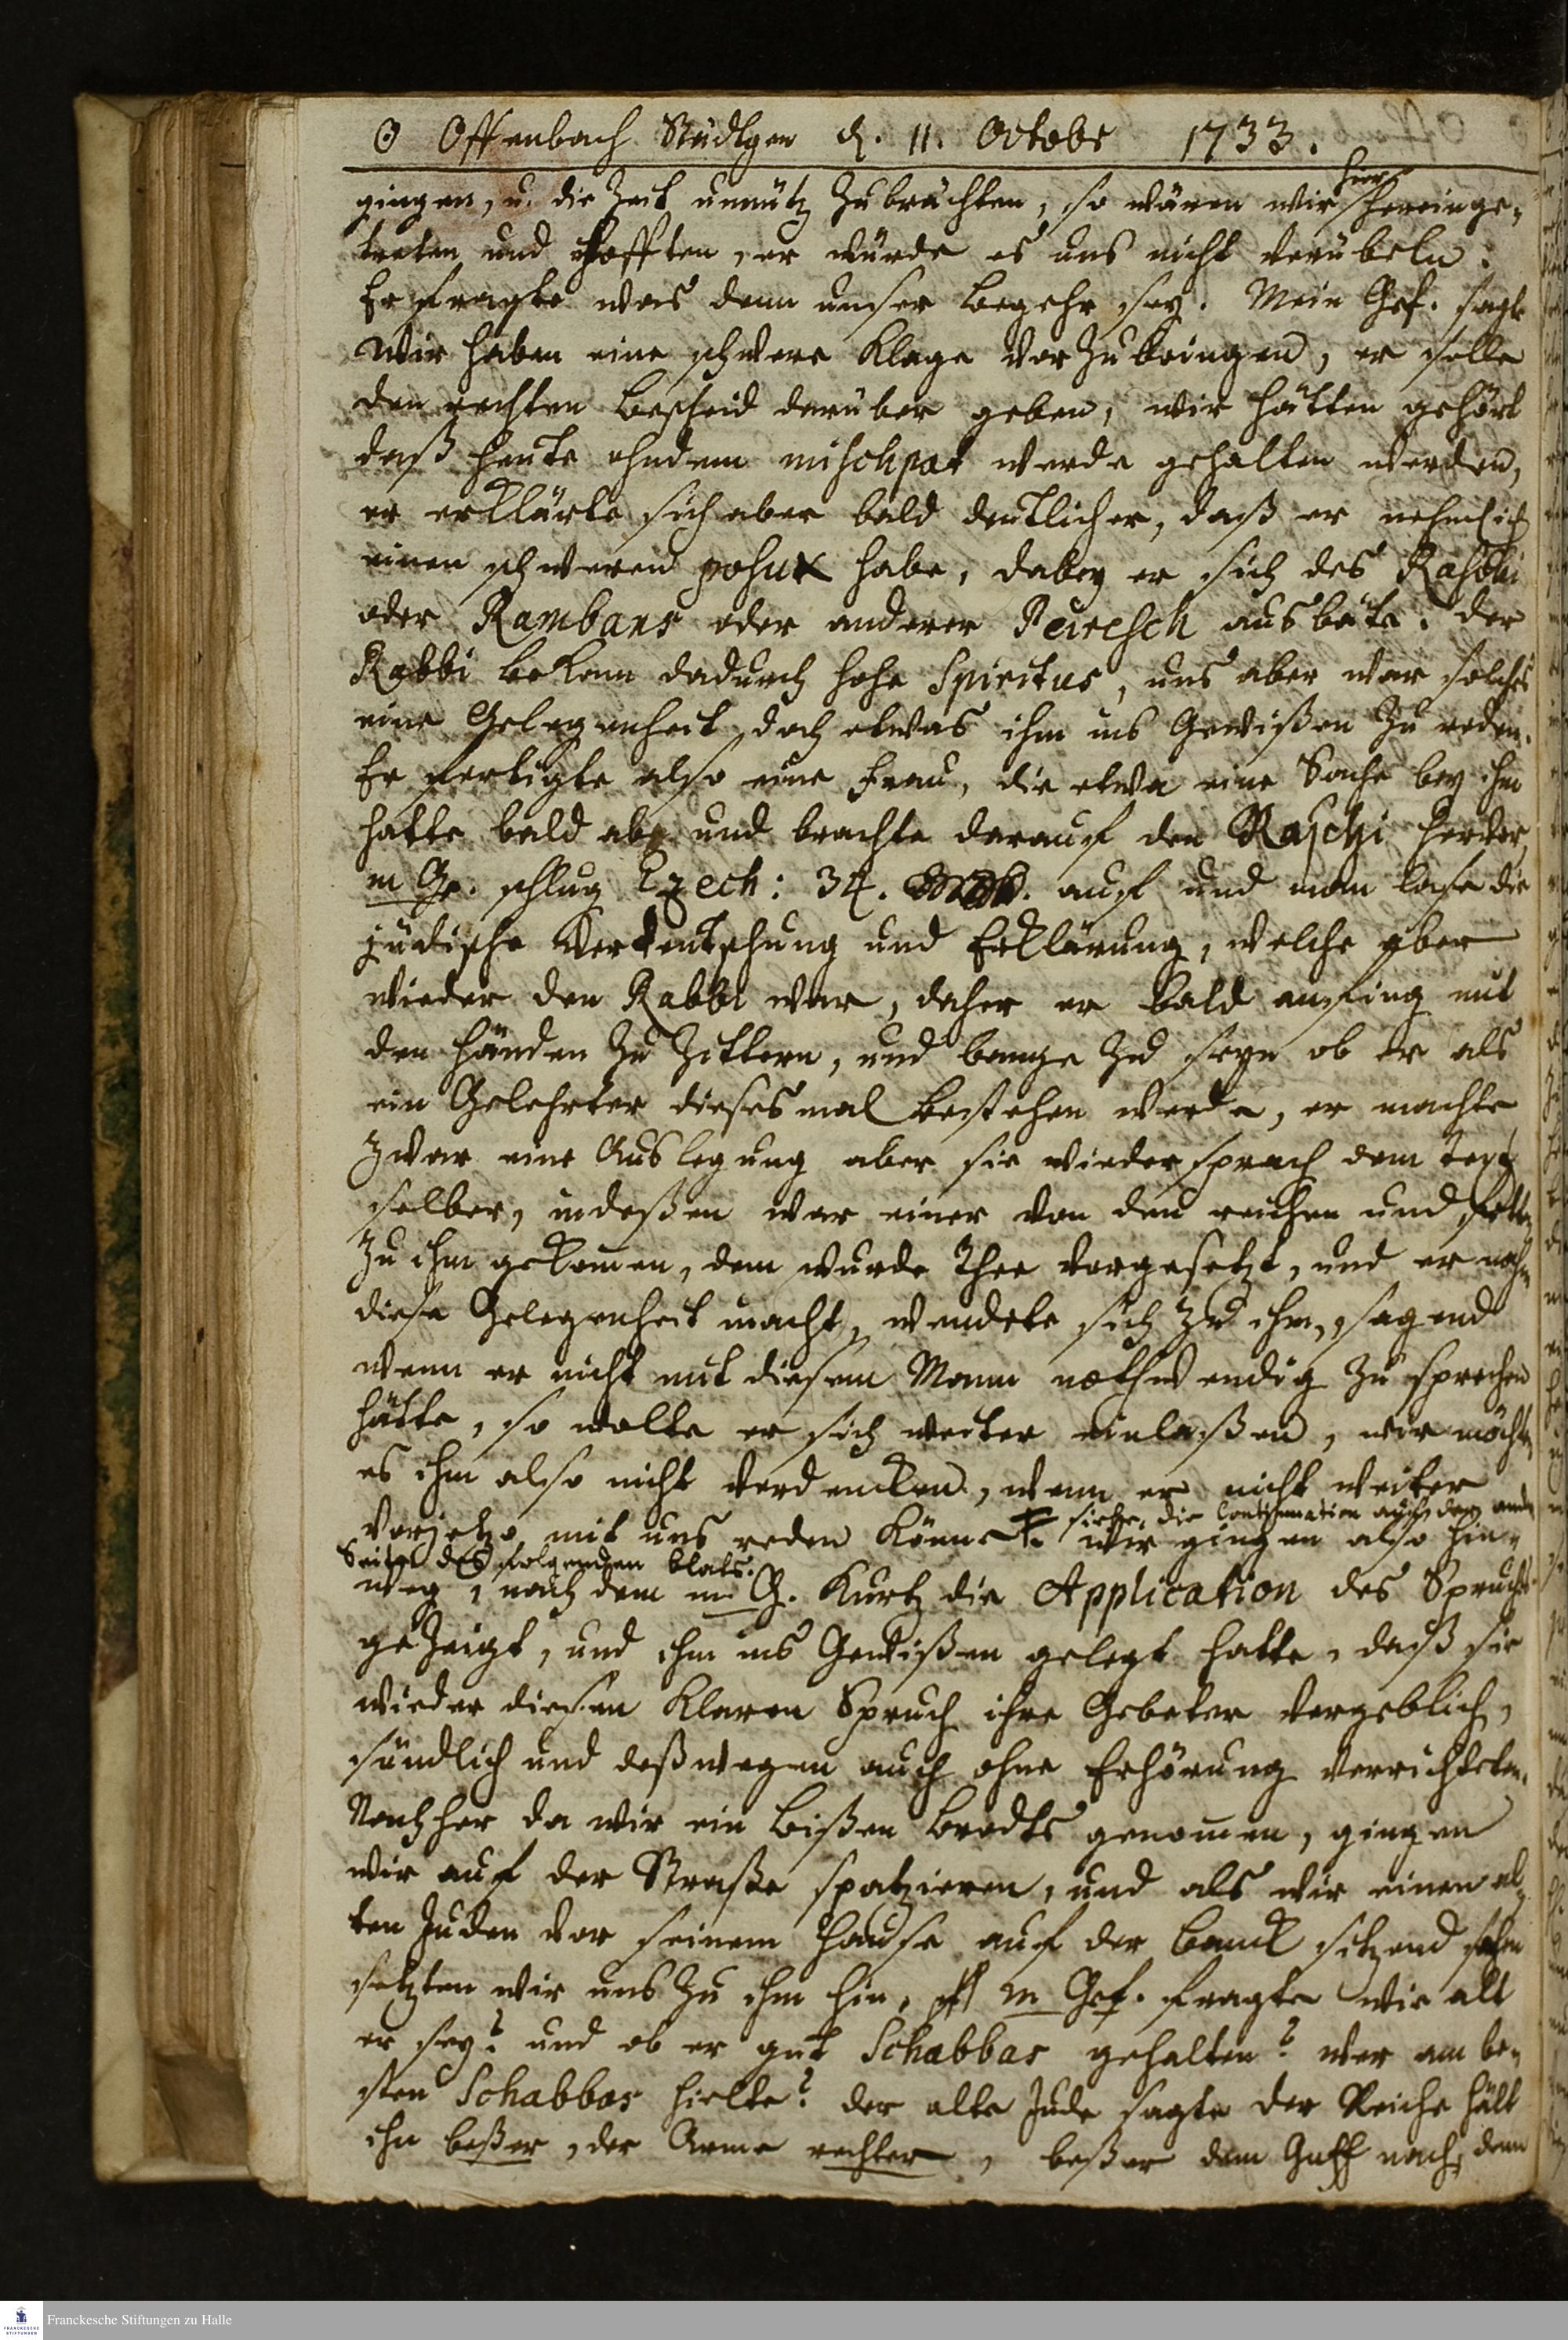 ☉ Offenbach Städtgen d. 11. Octobr 1733.
gingen, u. die Zeit unnütz zubrächten, so wären wir hier hereinge-
treten und hofften, er würde es uns nicht verübeln.
Er fragte was denn unser Begehr sey. Mein Gef. sagte
wir haben eine schwere Klage vorzubringen, er solle
den rechten Bescheid darüber geben, wir hätten gehört
daß heute ohndem mischpat werde gehalten werden,
er erklärte sich aber bald deutlicher, daß er nehmlich
einen schweren posuk habe, dabey er sich des Raschi
oder Rambans oder anderer Peiresch ausbäte. der
Rabbi bekam dadurch hohe Spiritus, uns aber war solches
eine Gelegenheit, doch etwas ihm ins Gewißen zu reden.
Er fertigte also eine Frau, die etwa eine Sache bey ihm
hatte bald ab, und brachte darauf den Raschi hervor,
m Gr. schlug Ezech: 34. auf und man lase die
jüdische Verteutschung und Erklärung, welche aber
wieder den Rabbi war, daher er bald anfing mit
den Händen zu zittern, und bange zu seyn ob er als
ein Gelehrter dieses mal bestehen werde, er machte
zwar eine Auslegung aber sie wiedersprach dem Text
selber, indeßen war einer von den reichen und fetten
zu ihm gekommen, dem wurde Thee vorgesetzt, und er nahm
diese Gelegenheit macht, wendete sich zu ihm, sagend
wenn er nicht mit diesem Mann nothwendig zu sprechen
hätte, so wolte er sich weiter einlaßen, wir möchten
es ihm also nicht verdencken, wenn er nicht weiter
vorjetzo mit uns reden könne. siehe, die Continuation auf der andern
Seite des folgenden blats. wir gingen also hin-
weg, nach dem m G. kurtz die Application des Spruchs
gezeigt, und ihm ins Gewißen gelegt hatte, daß sie
wieder diesen klaren Spruch ihre Gebeter vergeblich,
sündlich und deßwegen auch ohne Erhörung verrichteten.
Nachher da wir ein bißen Brodts genommen, gingen
wir auf der Straße spatzieren, und als wir einen al-
ten Juden vor seinem Hause auf der Banck sitzend sahen
setzten wir uns zu ihm hin, m Gef. fragte wie alt
er sey? und ob er gut Schabbas gehalten? wer am be-
sten Schabbas hielte? der alte Jude sagte der Reiche hält
ihn beßer, der Arme rechter, beßer dem Guff nach, denn
Franckesche Stiftungen zu Halle